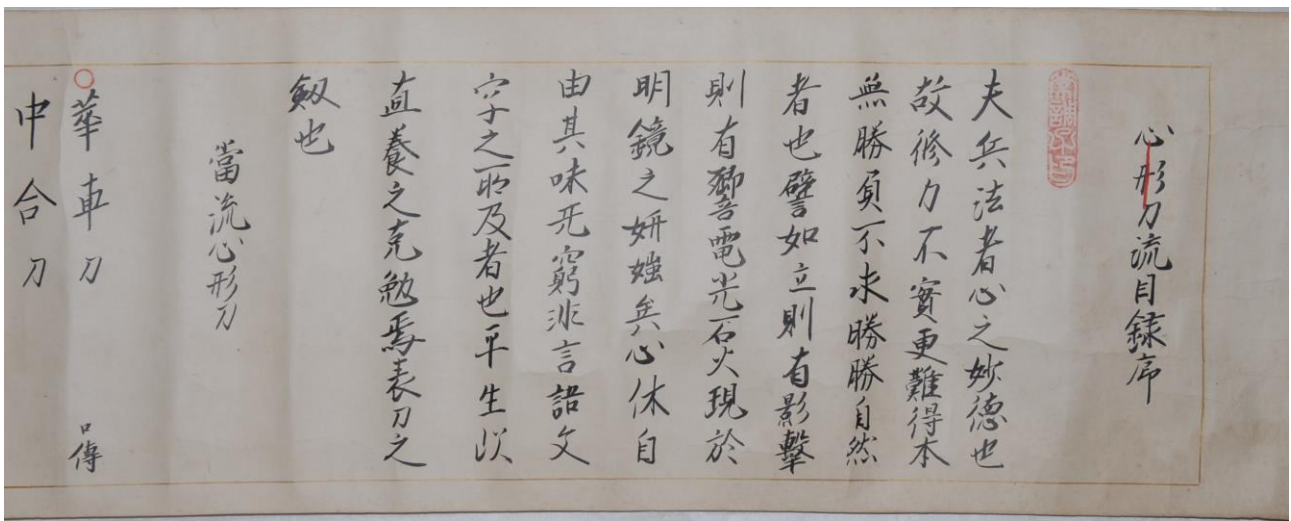 心形刀流目録序
夫兵法者心之妙徳也
故修力不實更難得本
無勝負不求勝勝自然
者也譬如立則有影擊
則有響電光石火現於
明鏡之妍媸矣心休自
由其味无窮非言語文
字之所及者也平生以
直養之克勉焉表刀之
剱也
當流心形刀
華車刀 口傳
中合刀